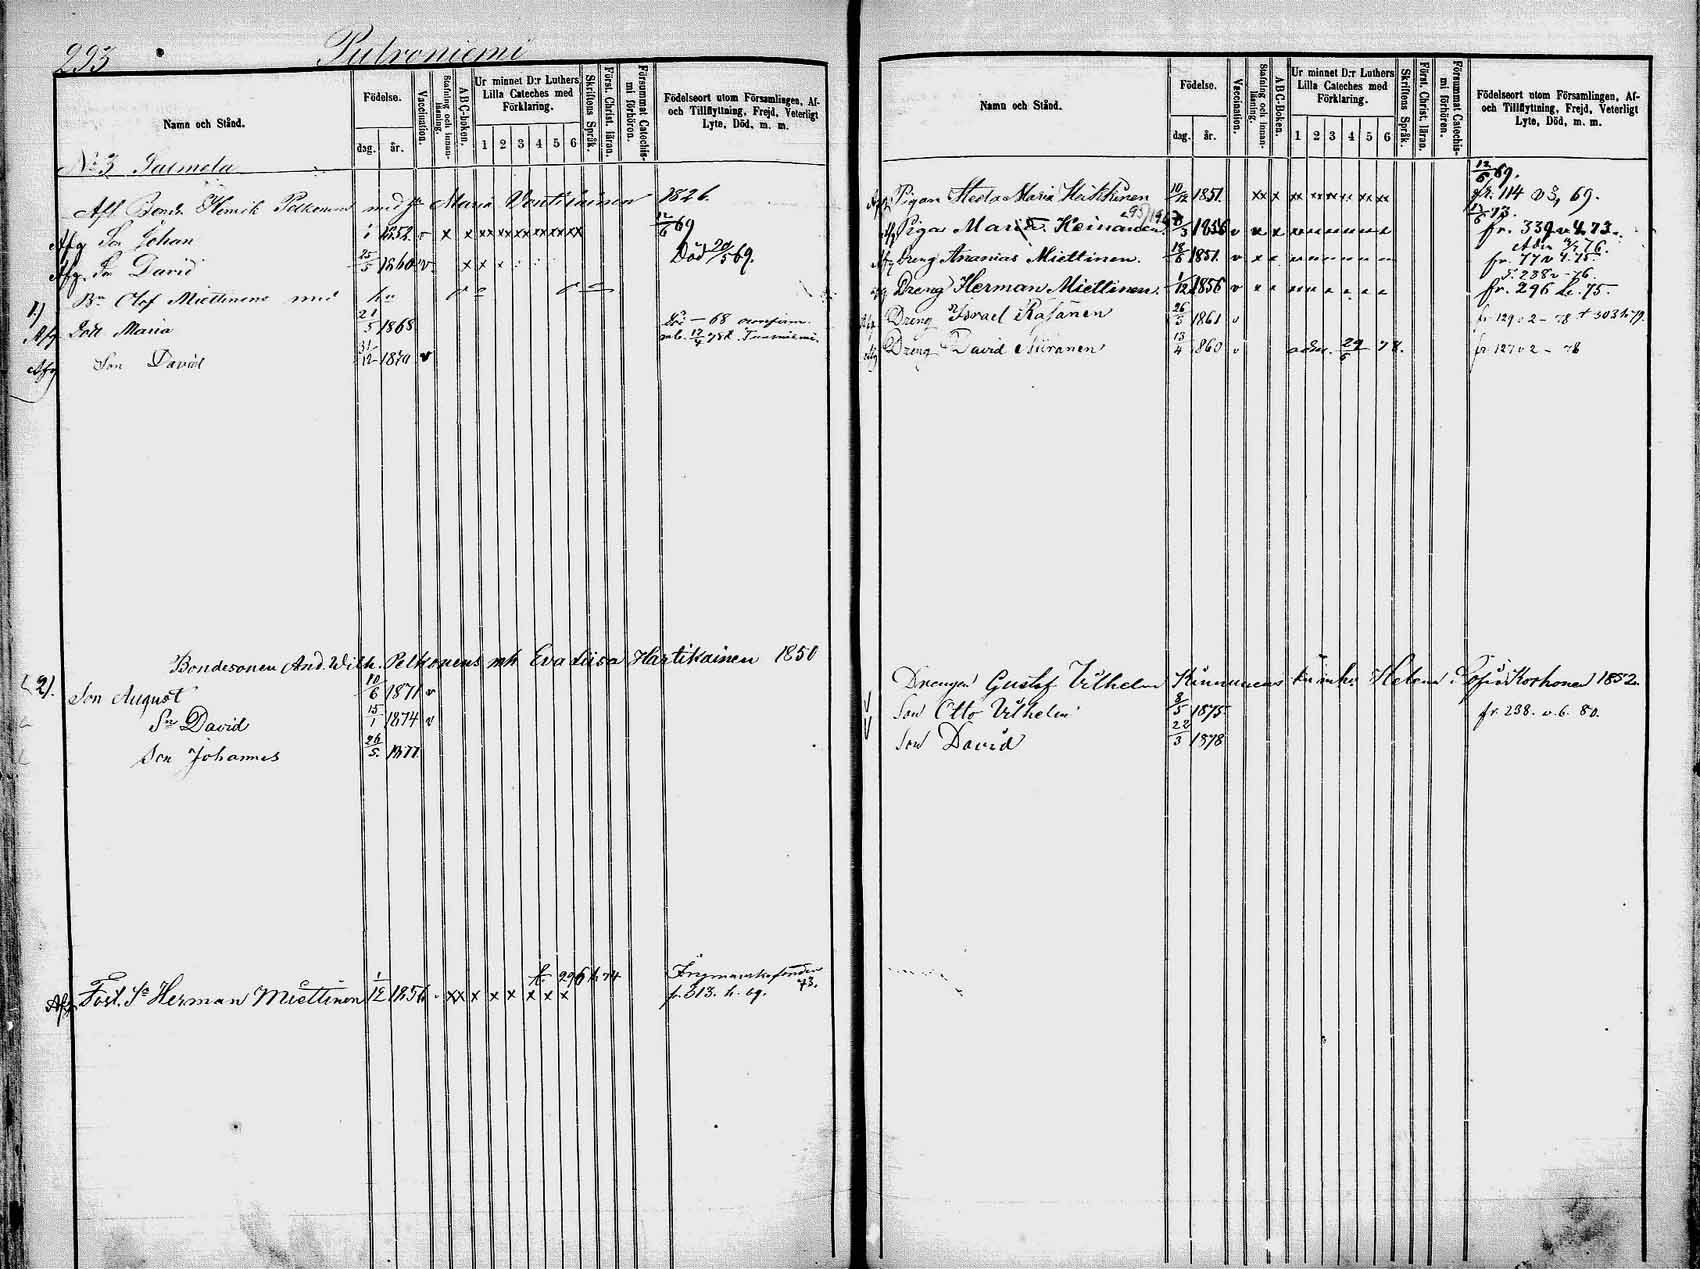 293 Putroniemi
Namn och Stånd.
Födelse.
dag. år.
Vaccination.
Stafning och innan-läsning.
ABC-boken.
Ur minnet D:r Luthers
Lilla Cateches med
Förklaring.
1 2 3 4 5 6
Skriftens Språk.
Först. Christ. läran.
Försummat Catechis-mi förhören.
Födelseort utom Församlingen, Af-
och Tillflyttning, Frejd, Veterligt
Lyte, Död, m. m.
No 3 Salmela
Afl. Henrik Pelkonens Maria 1826.
Afg Son Johan 1852 v x x xx xx xx xx xx xx 12/6 69
Afg. Sn David 25/5 1860 v x x x Död 20/5 69.
1) Bn Olof Miettinens
Afg Dott Maria 21/5 1868
Afg Son David 31/12 1870 v
Bondesonen And. Wilh. Pelkonens mh Eva Liisa Hartikainen 1850
2). Son August 10/6 1871 v
Sn David 15/1 1874 v
Son Johannes 26/5 1877
fr 296 h 74
Afg Fost. Sn Herman Miettinen 1/12 1856 xx x x x x x x
fr. 313. h. 69. 73.
Namn och Stånd.
Födelse.
dag. år.
Vaccination.
Stafning och innan-läsning.
ABC-Boken.
Ur minnet D:r Luthers
Lilla Cateches med
Förklaring.
1 2 3 4 5 6
Skriftens Språk.
Först. Christ. läran.
Försummat Catechis-mi förhören.
Födelseort utom Församlingen, Af-
och Tillflyttning, Frejd, Veterligt
Lyte, Död, m. m.
12/6 69.
Pigan Hedda Maria Heikkinen 10/12 1851. xx x xx xx xx xx xx xx fr. 114 v 3, 69.
Piga Maria Keinänen 1856 v x x fr. 339 v 4 73.
Afg Dreng Ananias Miettinen. 18/6 1851. v x x fr. 77 v 4. 75.
f. 238 v - 76.
Dreng Herman Miettinen. 1/12 1856 v fr. 296 h. 75.
Dreng Israel Räsänen 26/3 1861 v fr 129 v 2 - 78 + 303 h 79.
Dreng David Siiranen 13/4 1860 v adm. 29/6 - 78. fr 127 v 2 - 78
Drengen Gustaf Vilhelm Kinnunens Helena Sofia Korhonen 1852
Son Otto Vilhelm 8/5 1875 fr. 238. v. 6. 80.
Son David 22/3 1878